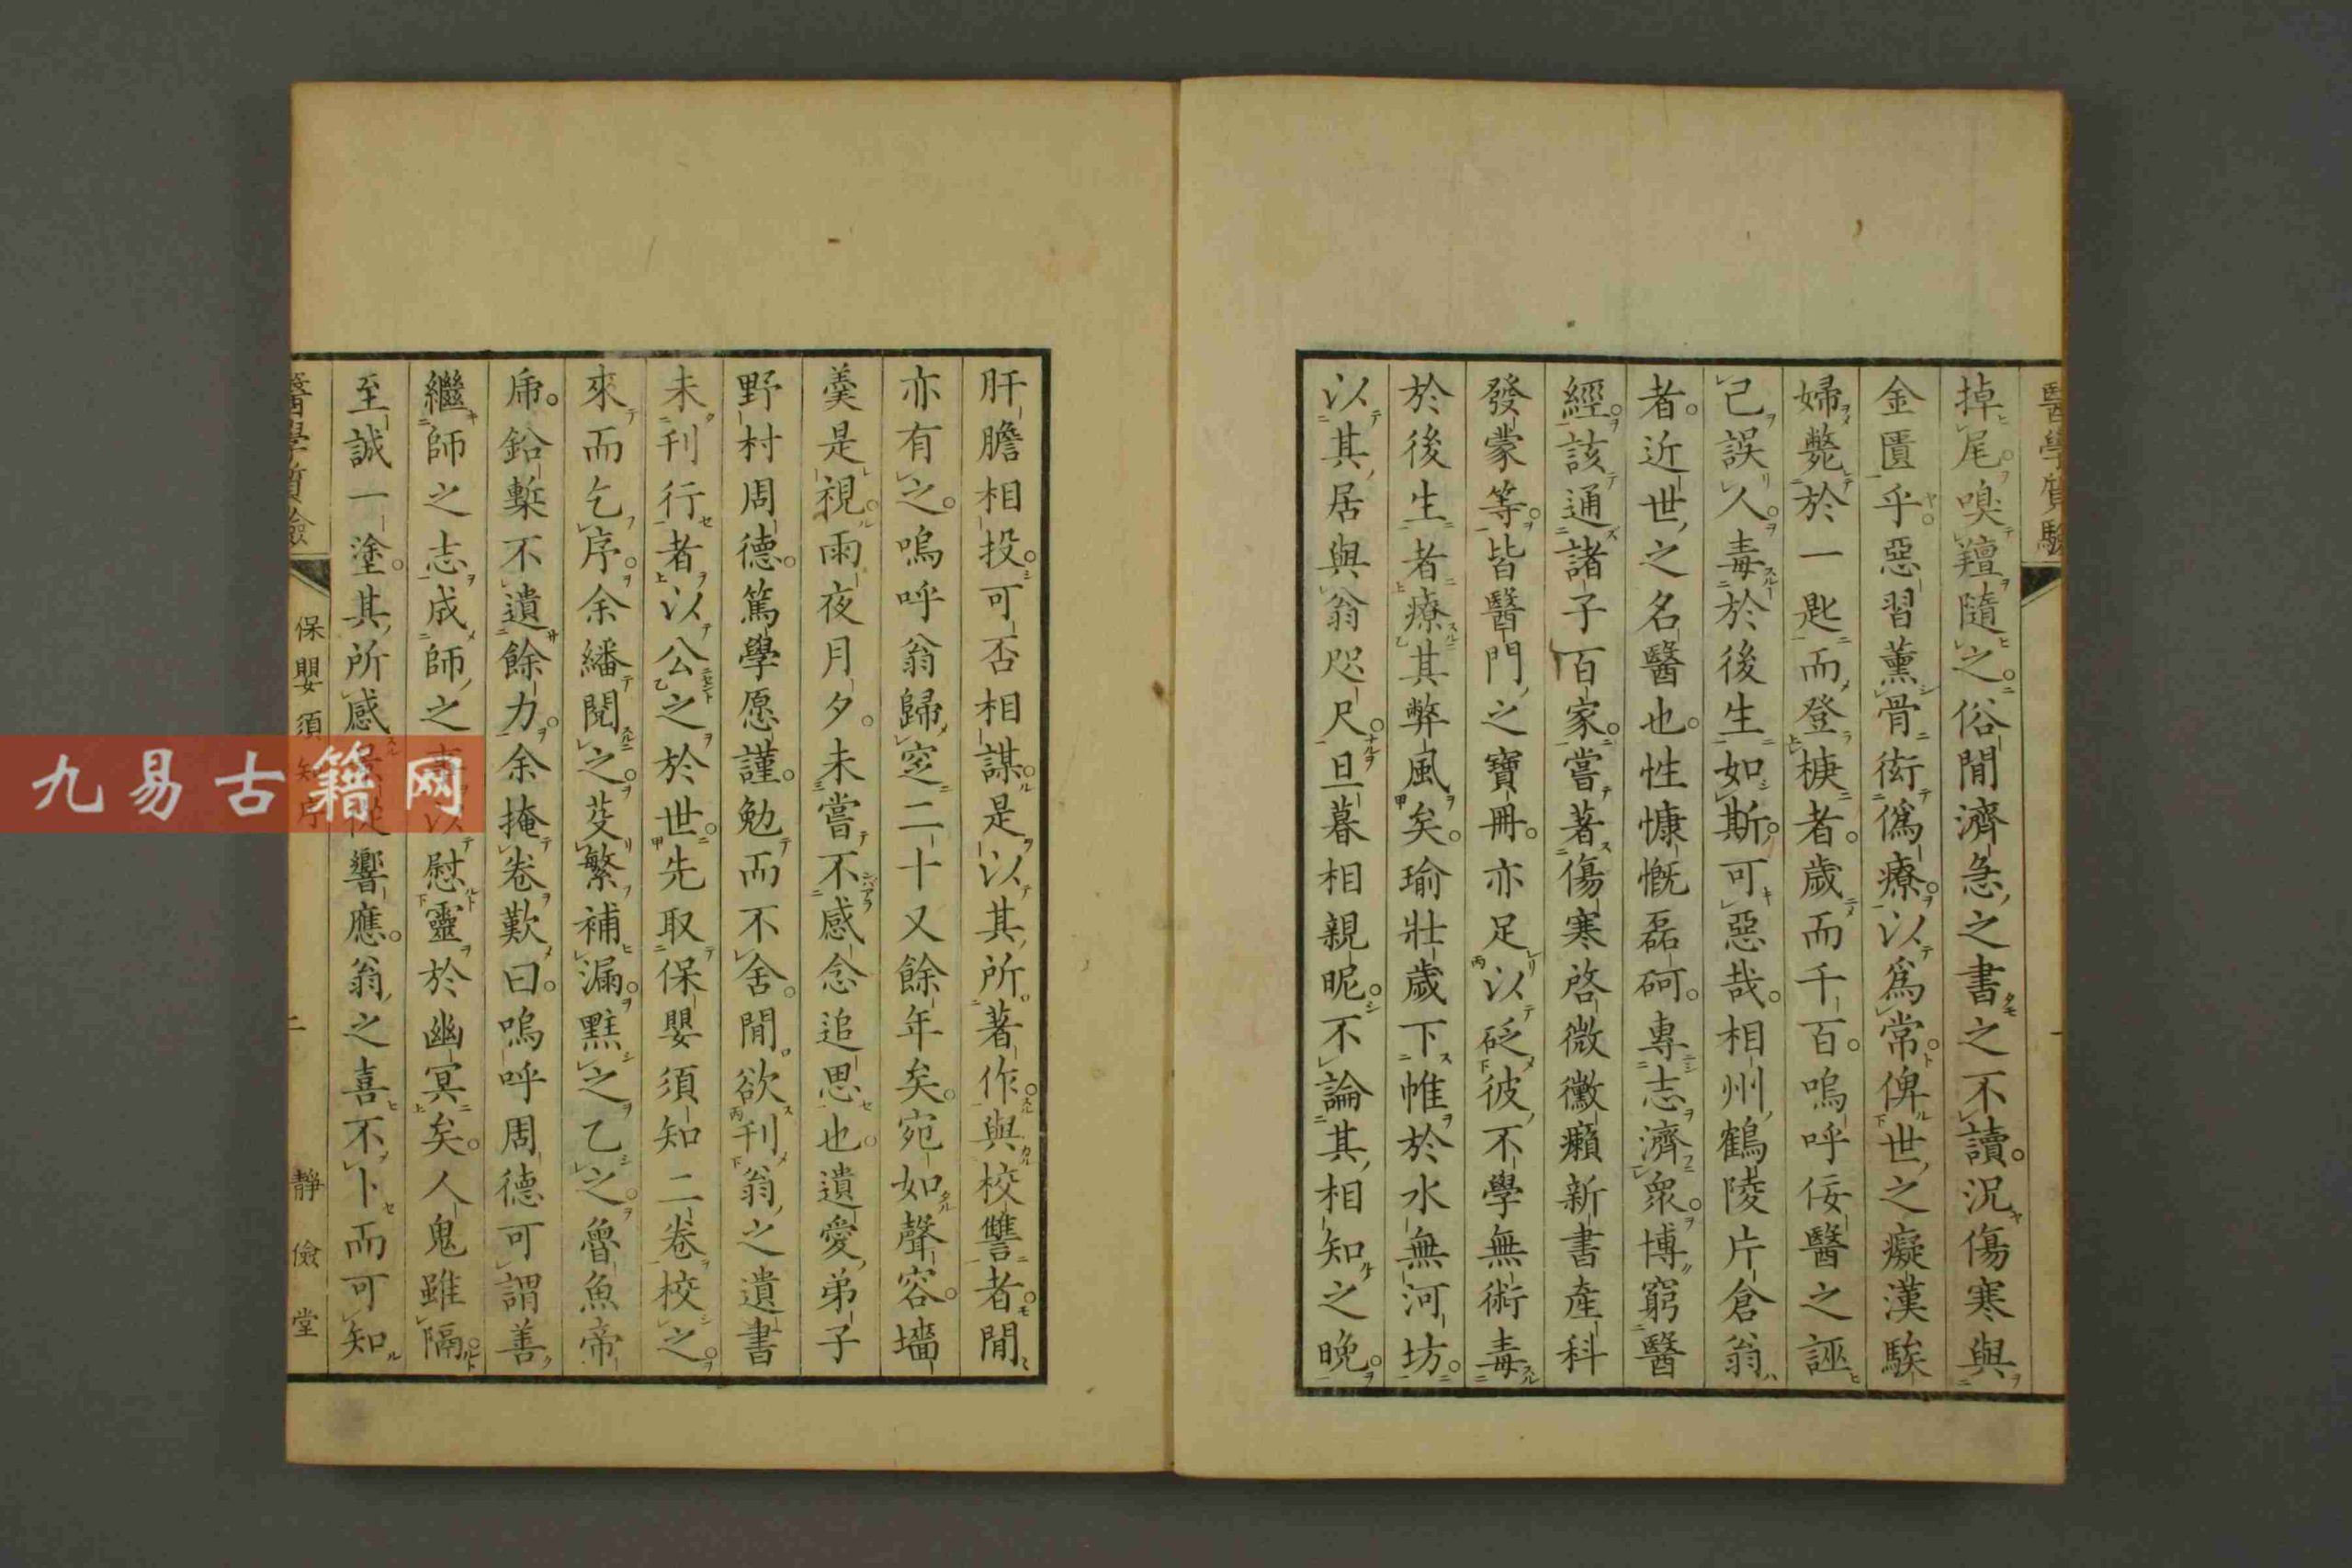 醫學質驗
掉尾嗅羶隨之俗間濟急之書之不讀況傷寒與
金匱乎惡習薰骨衒僞療以爲常俾世之癡漢騃
婦斃於一匙而登棙者歲而千百嗚呼佞醫之誣
己誤人毒於後生如斯可惡哉相州鶴陵片倉翁
者近世之名醫也性慷慨磊砢專志濟衆博窮醫
經該通諸子百家嘗著傷寒啓微黴癩新書產科
發蒙等皆醫門之寶冊亦足以砭彼不學無術毒
於後生者療其弊風矣瑜壯歲下帷於水無河坊
以其居與翁咫尺旦暮相親昵不論其相知之晚
肝膽相投可否相謀是以其所著作與校讐者間
亦有之嗚呼翁歸窆二十又餘年矣宛如聲容墻
羹是視雨夜月夕未嘗不感念追思也遺愛弟子
野村周德篤學愿謹勉而不舍閒欲刊翁之遺書
未刊行者以公之於世先取保嬰須知二卷校之
來而乞序余繙閱之芟繁補漏黑之乙之魯魚帝
乕鉛槧不遺餘力余掩卷歎曰嗚呼周德可謂善
繼師之志成師之以慰靈於幽冥矣人鬼雖隔
至誠一塗其所感響應翁之喜不卜而可知
醫學質驗
保嬰須知序
二
靜儉堂
九易古籍网